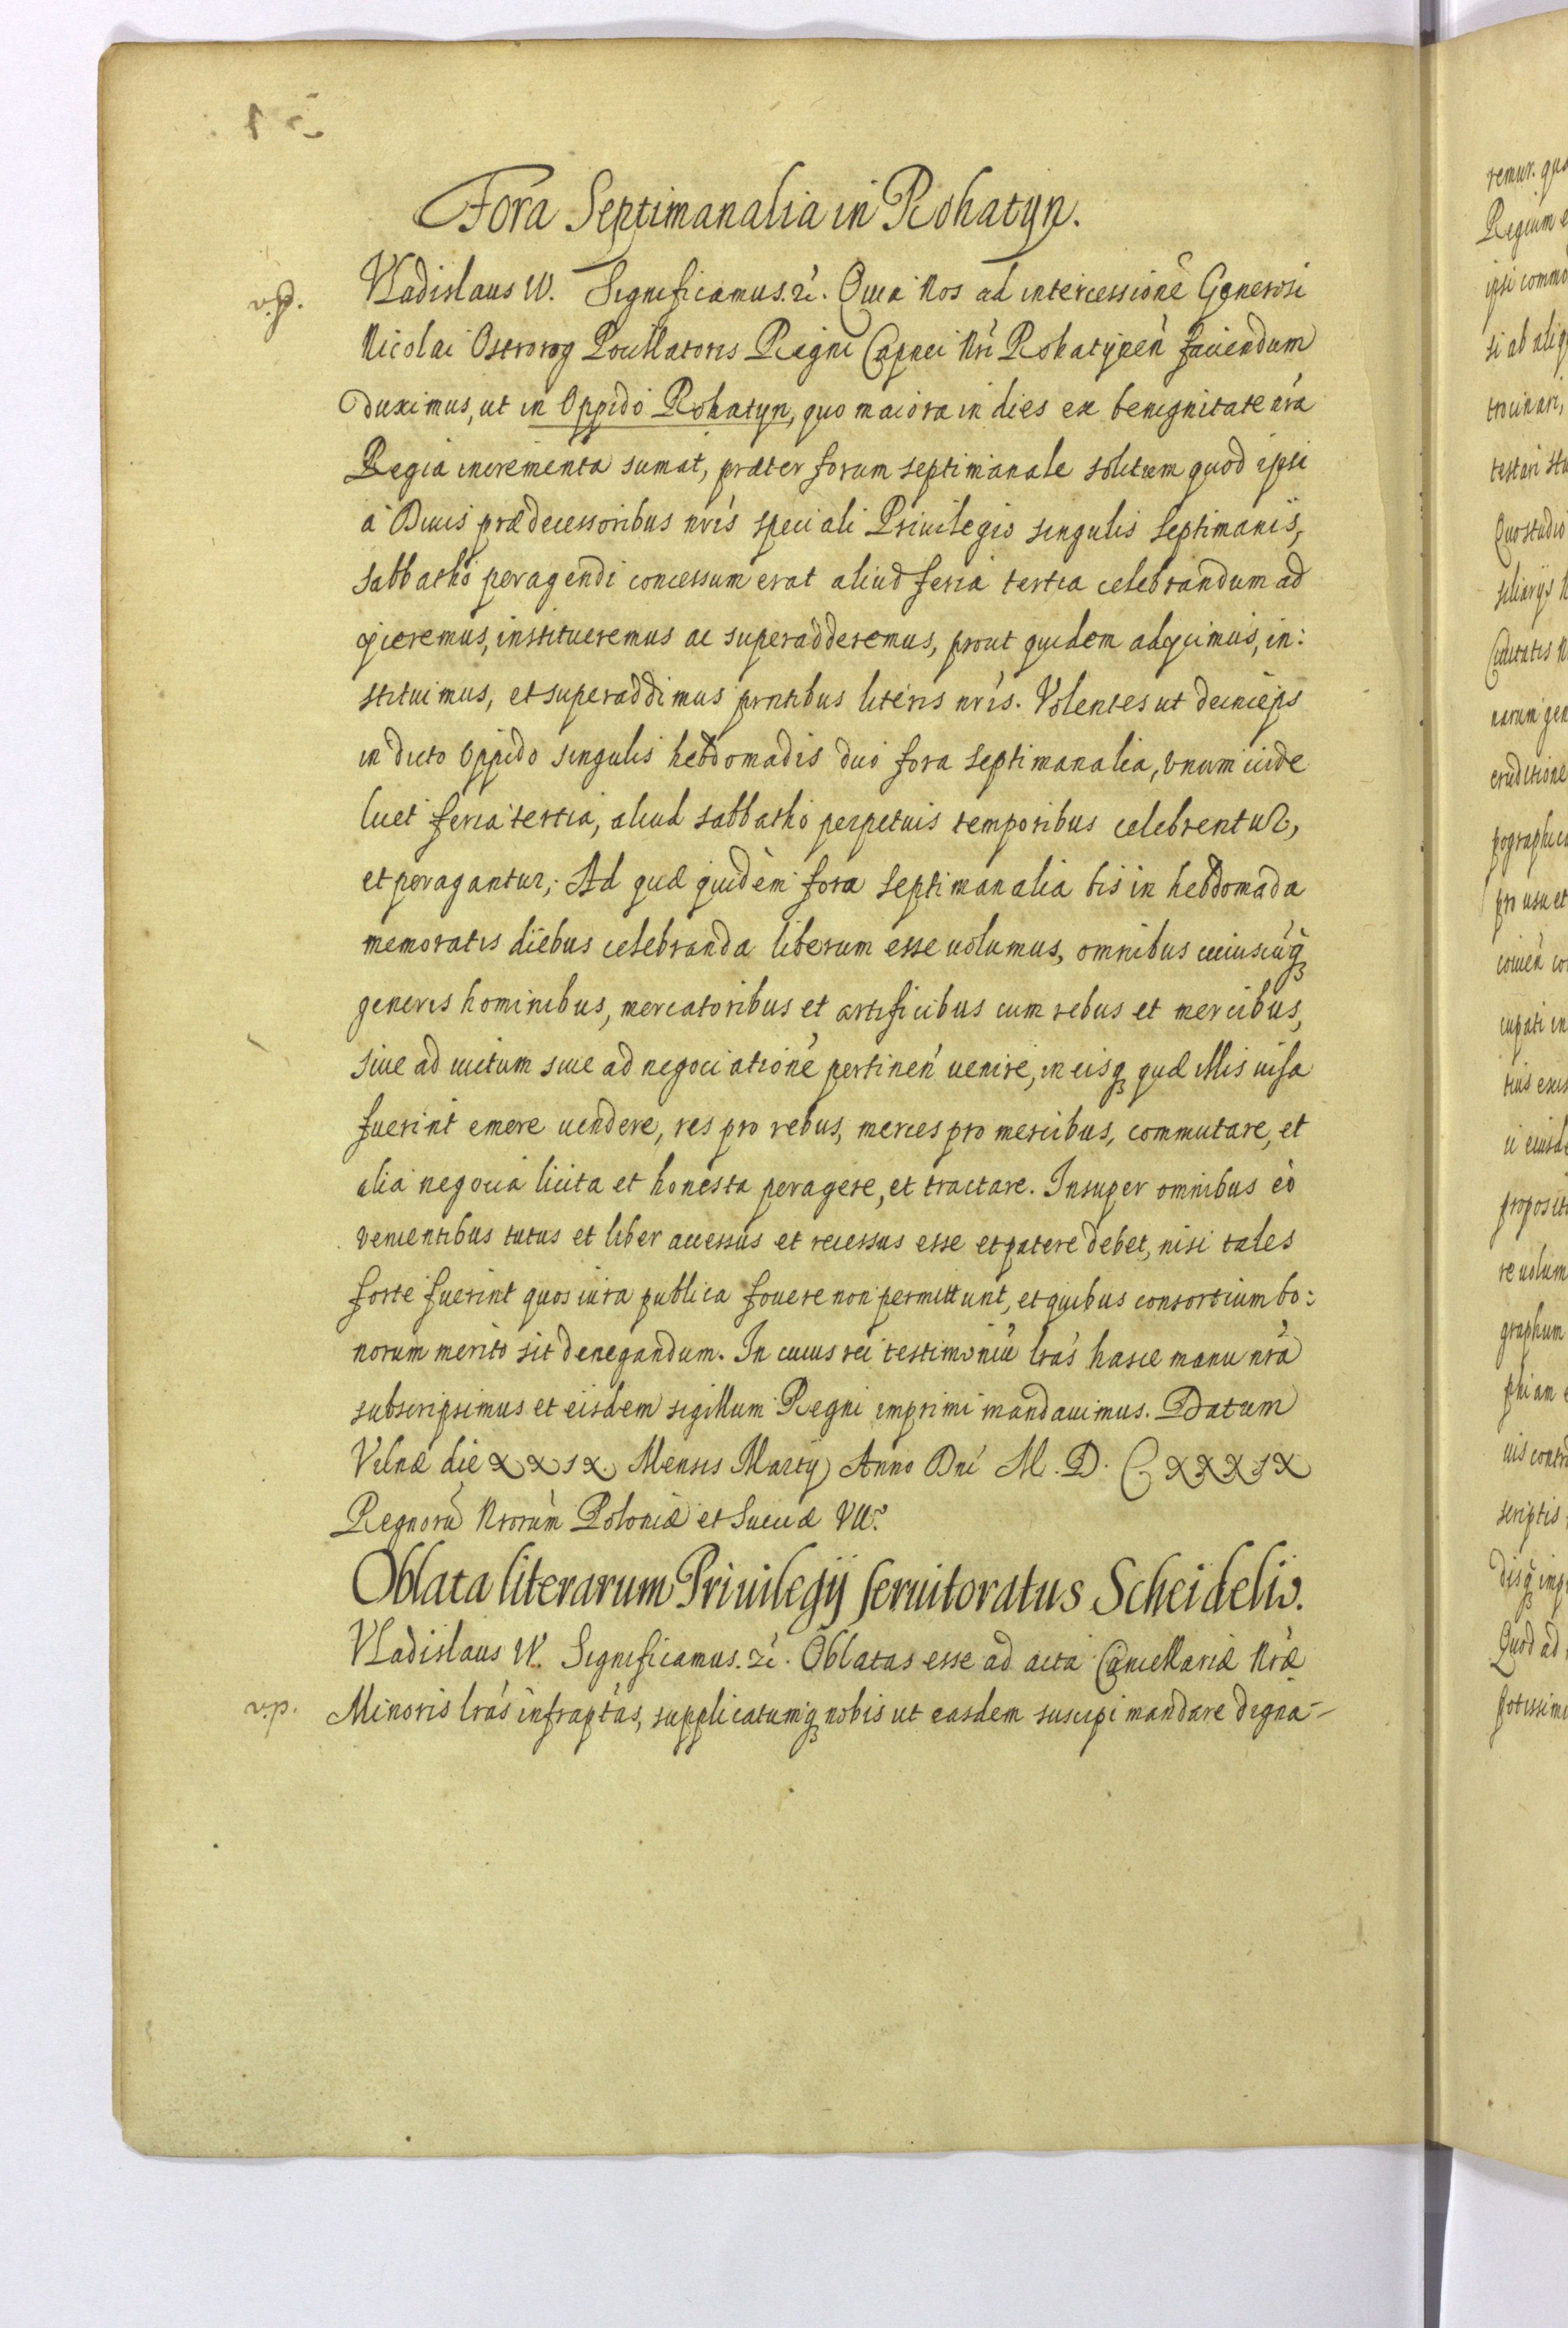 Fora Septimanalia in Rohatyn.
v.p. Vladislaus IV. Significamus. &c. Quia Nos ad intercessionē Generosi
Nicolai Ostrorog Pocillatoris Regni Capnei Nri Rohatynen̄ faciendum
duximus, ut in Oppido Rohatyn, quo maiora in dies ex benignitate nrā
Regia incrementa sumat, præter forum septimanale solitum quod ipsi
à Diuis prædecessoribus nris speciali Priuilegio singulis septimanis,
sabbatho peragendi concessum erat aliud feria tertia celebrandum ad
ijceremus, institueremus ac superadderemus, prout quidem adijcimus, in:
stituimus, et superaddimus prntibus literis nris. Volentes ut deinceps
in dicto Oppido singulis hebdomadis duo fora septimanalia, vnum uide
licet feria tertia, aliud sabbatho perpetuis temporibus celebrentur,
et peragantur; Ad quæ quidem fora septimanalia bis in hebdomada
memoratis diebus celebranda liberum esse uolumus, omnibus cuiuscūq
generis hominibus, mercatoribus et artificibus cum rebus et mercibus,
siue ad uictum siue ad negociationē pertinen̄ uenire, in eisq quæ illis uisa
fuerint emere uendere, res pro rebus, merces pro mercibus, commutare, et
alia negocia licita et honesta peragere, et tractare. Insuper omnibus eò
venientibus tutus et liber accessus et recessus esse et patere debet, nisi tales
forte fuerint quos iura publica fouere non permittunt, et quibus consortium bo:
norum merito sit denegandum. In cuius rei testimoniū lrás hasce manu nrā
subscripsimus et eisdem sigillum Regni imprimi mandauimus. Datum
Vilnæ die XXIX Mensis Martij Anno Dni M. D. C XXXIX
Regnorū Nrorum Poloniæ et Sueciæ VII.º
Oblata literarum Priuilegij seruitoratus Scheidelio.
Vladislaus IV. Significamus. &c. Oblatas esse ad acta Cancellariæ Nræ
v.p. Minoris lrás infraptas, supplicatumq nobis ut easdem suscipi mandare digna-
remur. quo
Regium
ipsi commo
si ab aliq
trocinari,
testari stu
Quo studio
siliarijs
Ciuitatis N
narum gen
eruditione
pographic
pro usu et
cupati in
propositi
re uolum
graphum
phiam
uis contr
scriptis
disq imp
Quod ad
potissim